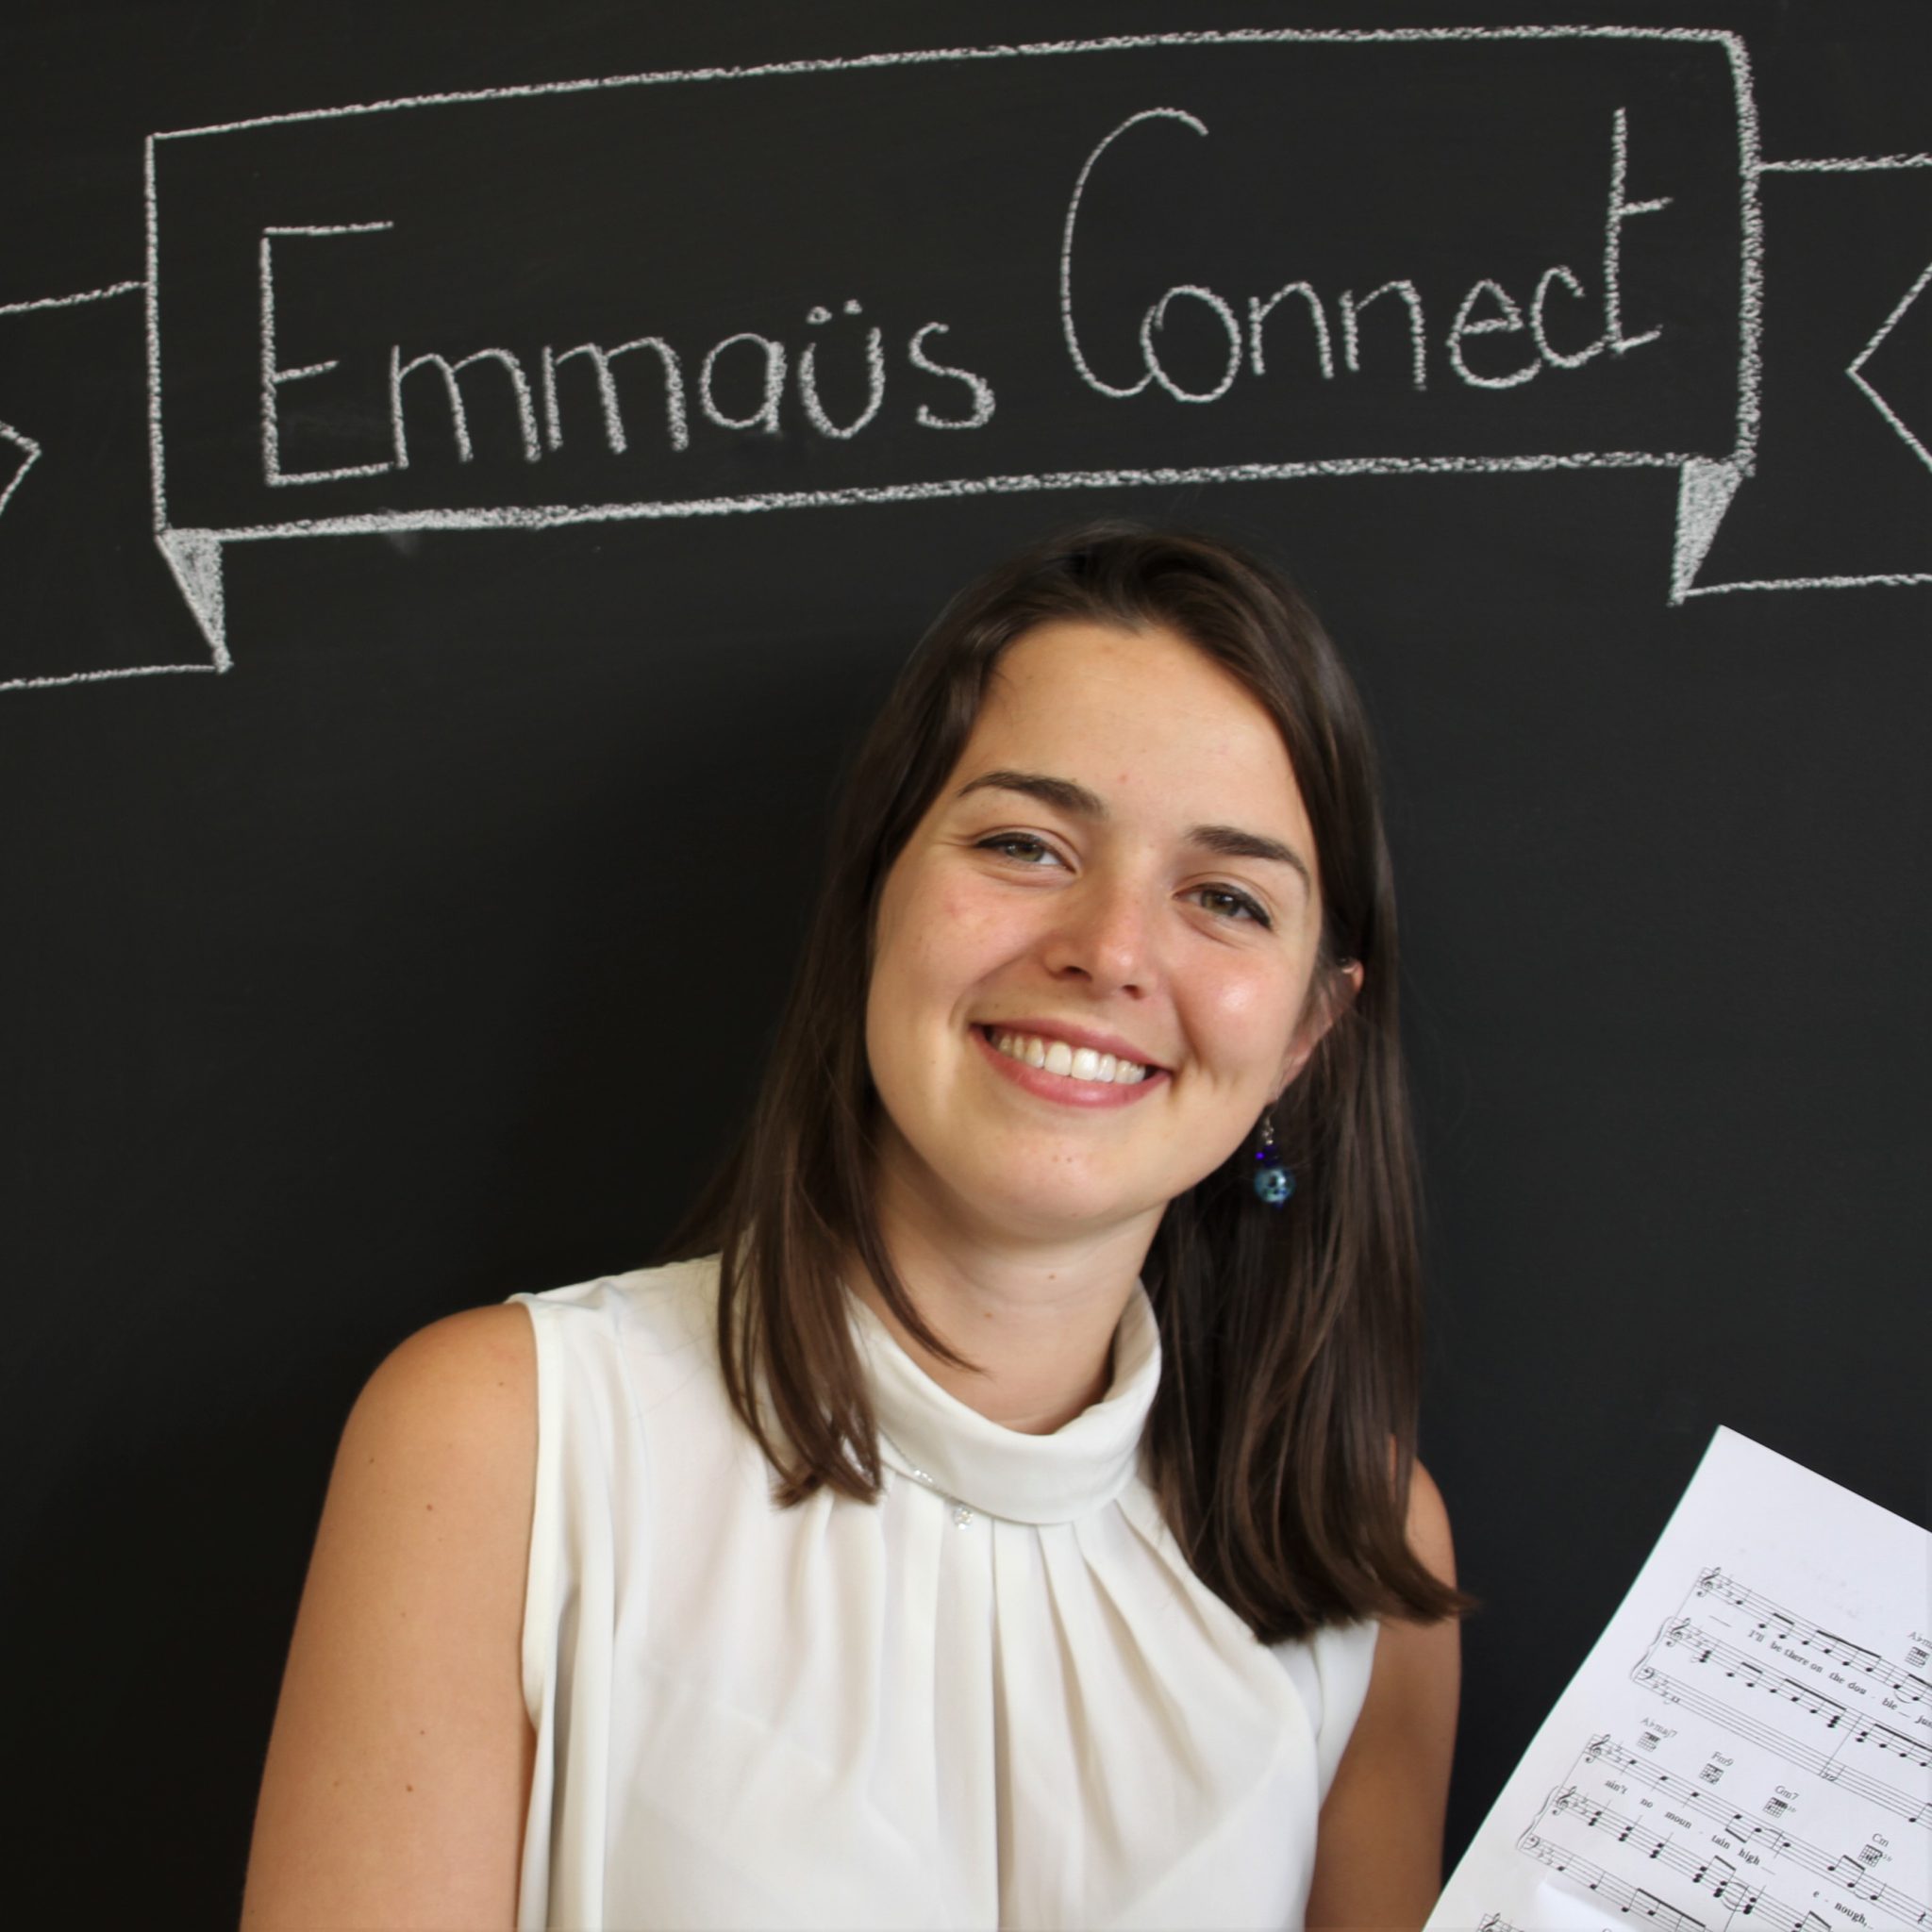 Emmaüs Connect
I'll be there on the dou - ble — jus
A♭maj7 Fm9 Gm7 Cm
ain't no moun - tain high
e - nough,